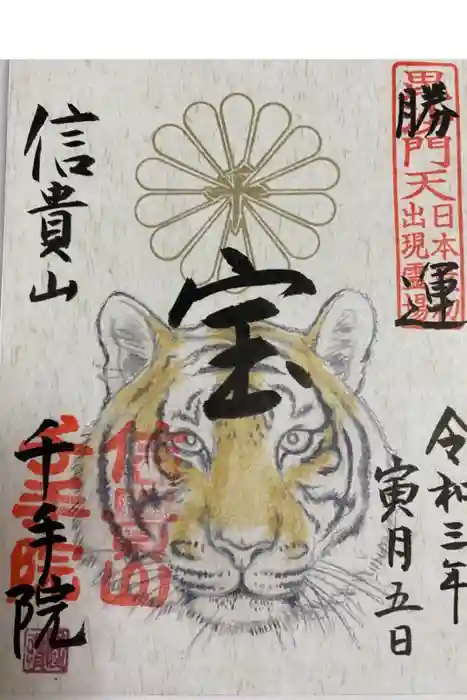 勝運
毘沙門天
日本初
出現霊場
令和三年
寅月五日
宝
信貴山
千手院
信貴山
千手院